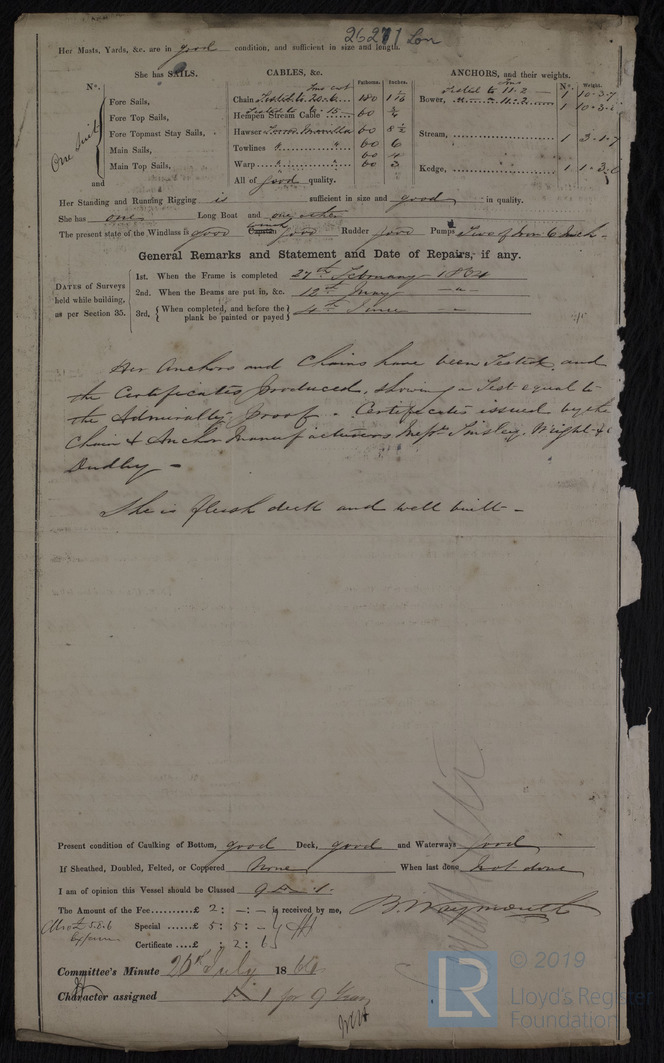 26271 Lon
Her Masts, Yards, &c. are in good condition, and sufficient in size and length.
She has SAILS. CABLES, &c. ANCHORS, and their weights.
N°. Fathoms. Inches. N°. Weight.
Fore Sails, Chain Tested to 20.6 180 1 1/16 Bower, Tested to 11.2 1 10.3.7
Fore Top Sails, Hempen Stream Cable 60 11.2 1
Fore Topmast Stay Sails, Hawser Manilla 60 8 1/2
Main Sails, Towlines 60 6 Stream, 1 3.1.7
60 4
Main Top Sails, Warp 60 3 Kedge, 1
One Suit
and All of good quality.
Her Standing and Running Rigging is sufficient in size and good in quality.
She has one Long Boat and one other
The present state of the Windlass is good Capstan good Rudder good Pumps Two of Iron 6 Inch
General Remarks and Statement and Date of Repairs, if any.
DATES of Surveys held while building, as per Section 35.
1st. When the Frame is completed 27th February
2nd. When the Beams are put in, &c. 12th May
3rd. { When completed, and before the plank be painted or payed } 4th June
Her Anchors and Chains have been Tested, and
the Certificates produced, showing a Test equal to
the Admiralty proof. Certificates issued by the
Chain & Anchor Manufacturers Messrs Tinsley, Wright & Co
Dudley -
She is flush deck and well built -
Present condition of Caulking of Bottom, good Deck, good and Waterways good
If Sheathed, Doubled, Felted, or Coppered None When last done not done
I am of opinion this Vessel should be Classed 9 A 1.
The Amount of the Fee .......... £ 2 : - : - is received by me, B. Waymouth
Special ...... £ 5 : 5 : -
Certificate .. £ : 2 : 6
Committee's Minute 26th July 186
Character assigned A 1 for 9 Years
© 2019
LR
Lloyd's Register
Foundation